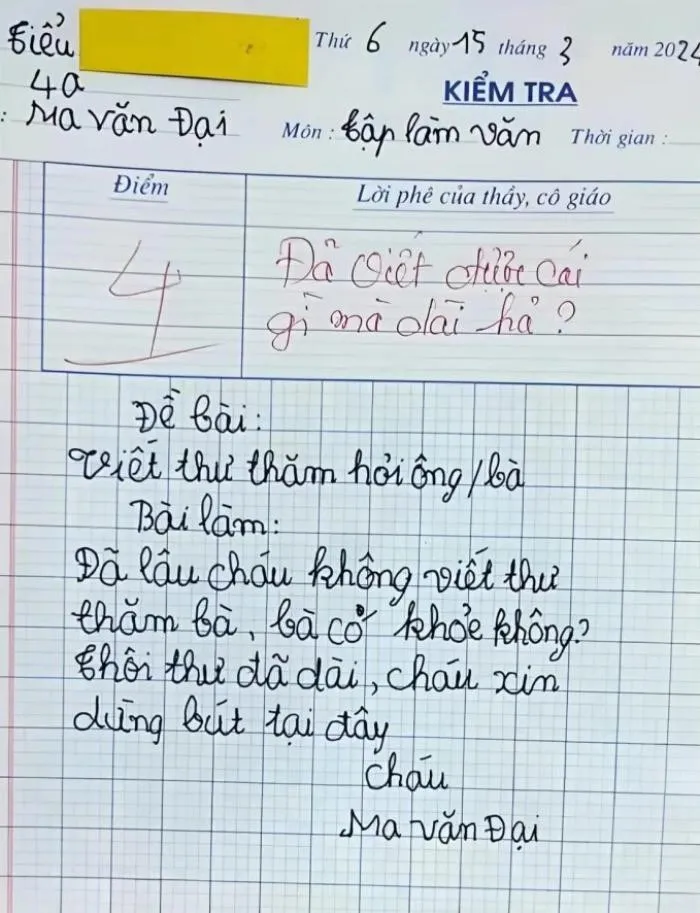 Tiểu
Thứ 6 ngày 15 tháng 3 năm 2024
4a
KIỂM TRA
: Ma Văn Đại
Môn : tập làm văn Thời gian :
Điểm
Lời phê của thầy, cô giáo
4
Đã viết được cái
gì mà dài hả ?
Đề bài:
Viết thư thăm hỏi ông/bà
Bài làm:
Đã lâu cháu không viết thư
thăm bà, bà cổ khỏe không?
thôi thư đã dài, cháu xin
dừng bút tại đây
Cháu
Ma văn Đại